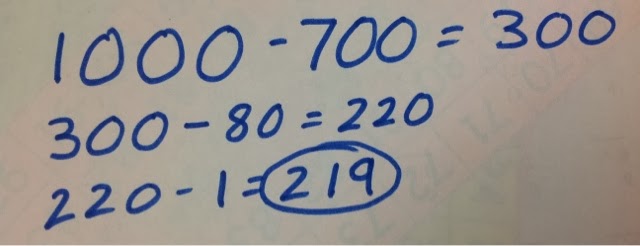 1000 - 700 = 300
300 - 80 = 220
220 - 1 = 219